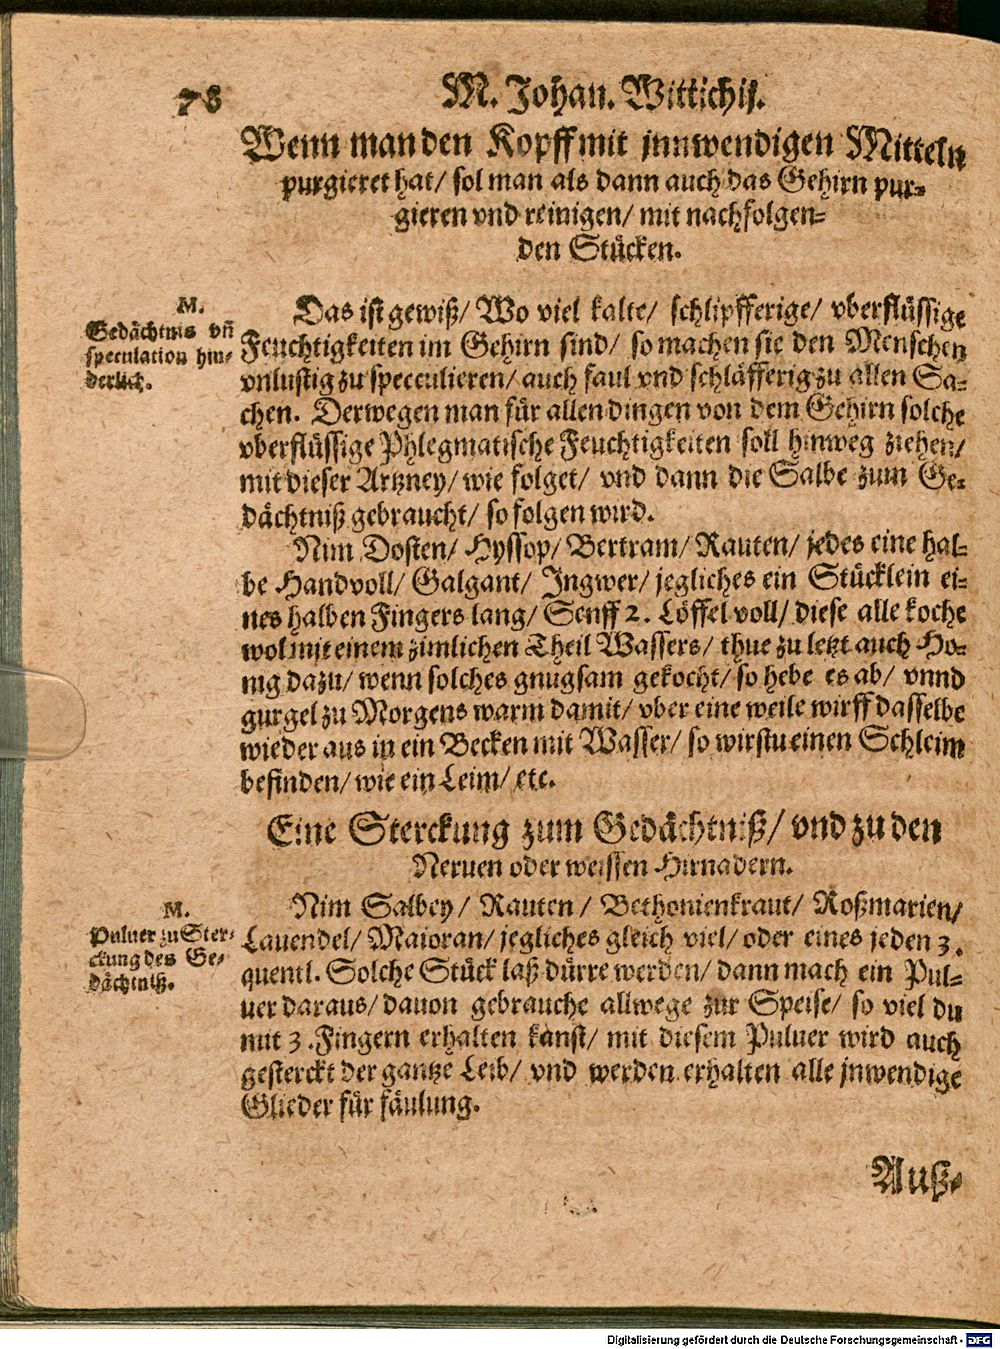 78
M. Johan. Wittichij.
Wenn man den Kopff mit jnnwendigen Mitteln
purgieret hat/ sol man als dann auch das Gehirn pur-
gieren vnd reinigen/ mit nachfolgen-
den Stücken.
M.
Gedächtnis vñ
speculation hin-
derlich.
Das ist gewiß/ Wo viel kalte/ schlipfferige/ vberflüssige
Feuchtigkeiten im Gehirn sind/ so machen sie den Menschen
vnlustig zu speculieren/ auch faul vnd schläfferig zu allen Sa-
chen. Derwegen man für allen dingen von dem Gehirn solche
vberflüssige Phlegmatische Feuchtigkeiten soll hinweg ziehen/
mit dieser Artzney/ wie folget/ vnd dann die Salbe zum Ge-
dächtniß gebraucht/ so folgen wird.
Nim Dosten/ Hyssop/ Bertram/ Rauten/ jedes eine hal-
be Handvoll/ Galgant/ Ingwer/ jegliches ein Stücklein ei-
nes halben Fingers lang/ Senff 2. Löffel voll/ diese alle koche
wol mit einem zimlichen Theil Wassers/ thue zu letzt auch Ho-
nig dazu/ wenn solches gnugsam gekocht/ so hebe es ab/ vnnd
gurgel zu Morgens warm damit/ vber eine weile wirff dasselbe
wieder aus in ein Becken mit Wasser/ so wirstu einen Schleim
befinden/ wie ein Leim/ etc.
Eine Sterckung zum Gedächtniß/ vnd zu den
Neruen oder weissen Hirnadern.
M.
Puluer zu Ster-
ckung des Ge-
dächtniß.
Nim Salbey/ Rauten/ Bethonienkraut/ Roßmarien/
Lauendel/ Maioran/ jegliches gleich viel/ oder eines jeden 3.
quentl. Solche Stück laß dürre werden/ dann mach ein Pul-
uer daraus/ dauon gebrauche allwege zur Speise/ so viel du
mit 3. Fingern erhalten kanst/ mit diesem Puluer wird auch
gesterckt der gantze Leib/ vnd werden erhalten alle jnwendige
Glieder für fäulung.
Auß-
Digitalisierung gefördert durch die Deutsche Forschungsgemeinschaft - DFG